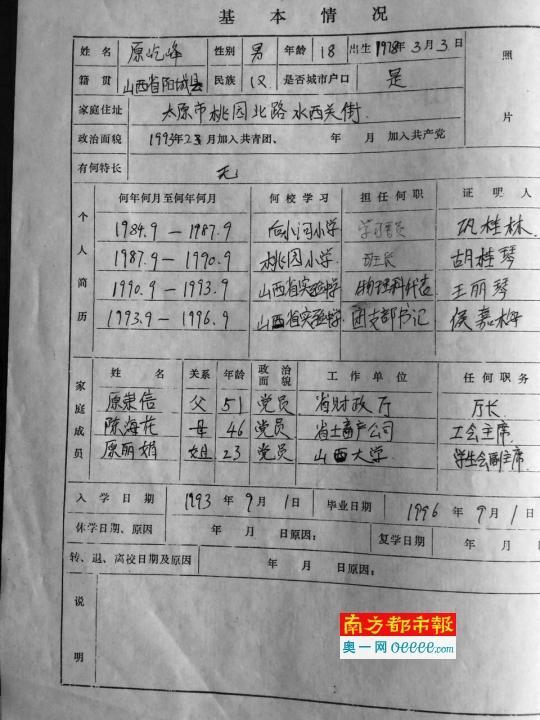 基本情况
姓名 原屹峰 性别 男 年龄 18 出生 1978年3月3日 照片
籍贯 山西省阳城县 民族 汉 是否城市户口 是
家庭住址 太原市桃园北路水西关街
政治面貌 1993年2月加入共青团、 年 月 加入共产党
有何特长 无
个人简历
何年何月至何年何月 何校学习 担任何职 证明人
1984.9 — 1987.9 小学 学习委员 巩桂林
1987.9 — 1990.9 桃园小学 班长 胡桂琴
1990.9 — 1993.9 山西省实验中学 物理科代表 王丽琴
1993.9 — 1996.9 山西省实验中学 团支部书记 侯嘉梅
家庭成员
姓名 关系 年龄 政治面貌 工作单位 任何职务
原崇信 父 51 党员 省财政厅 厅长
陈海花 母 46 党员 省土畜产公司 工会主席
原丽娟 姐 23 党员 山西大学 学生会副主席
入学日期 1993年9月1日 毕业日期 1996年9月1日
休学日期、原因 年 月 日原因: 复学日期 年 月
转、退、离校日期及原因 年 月 日原因:
说明
南方都市報
奥一网oeeee.com